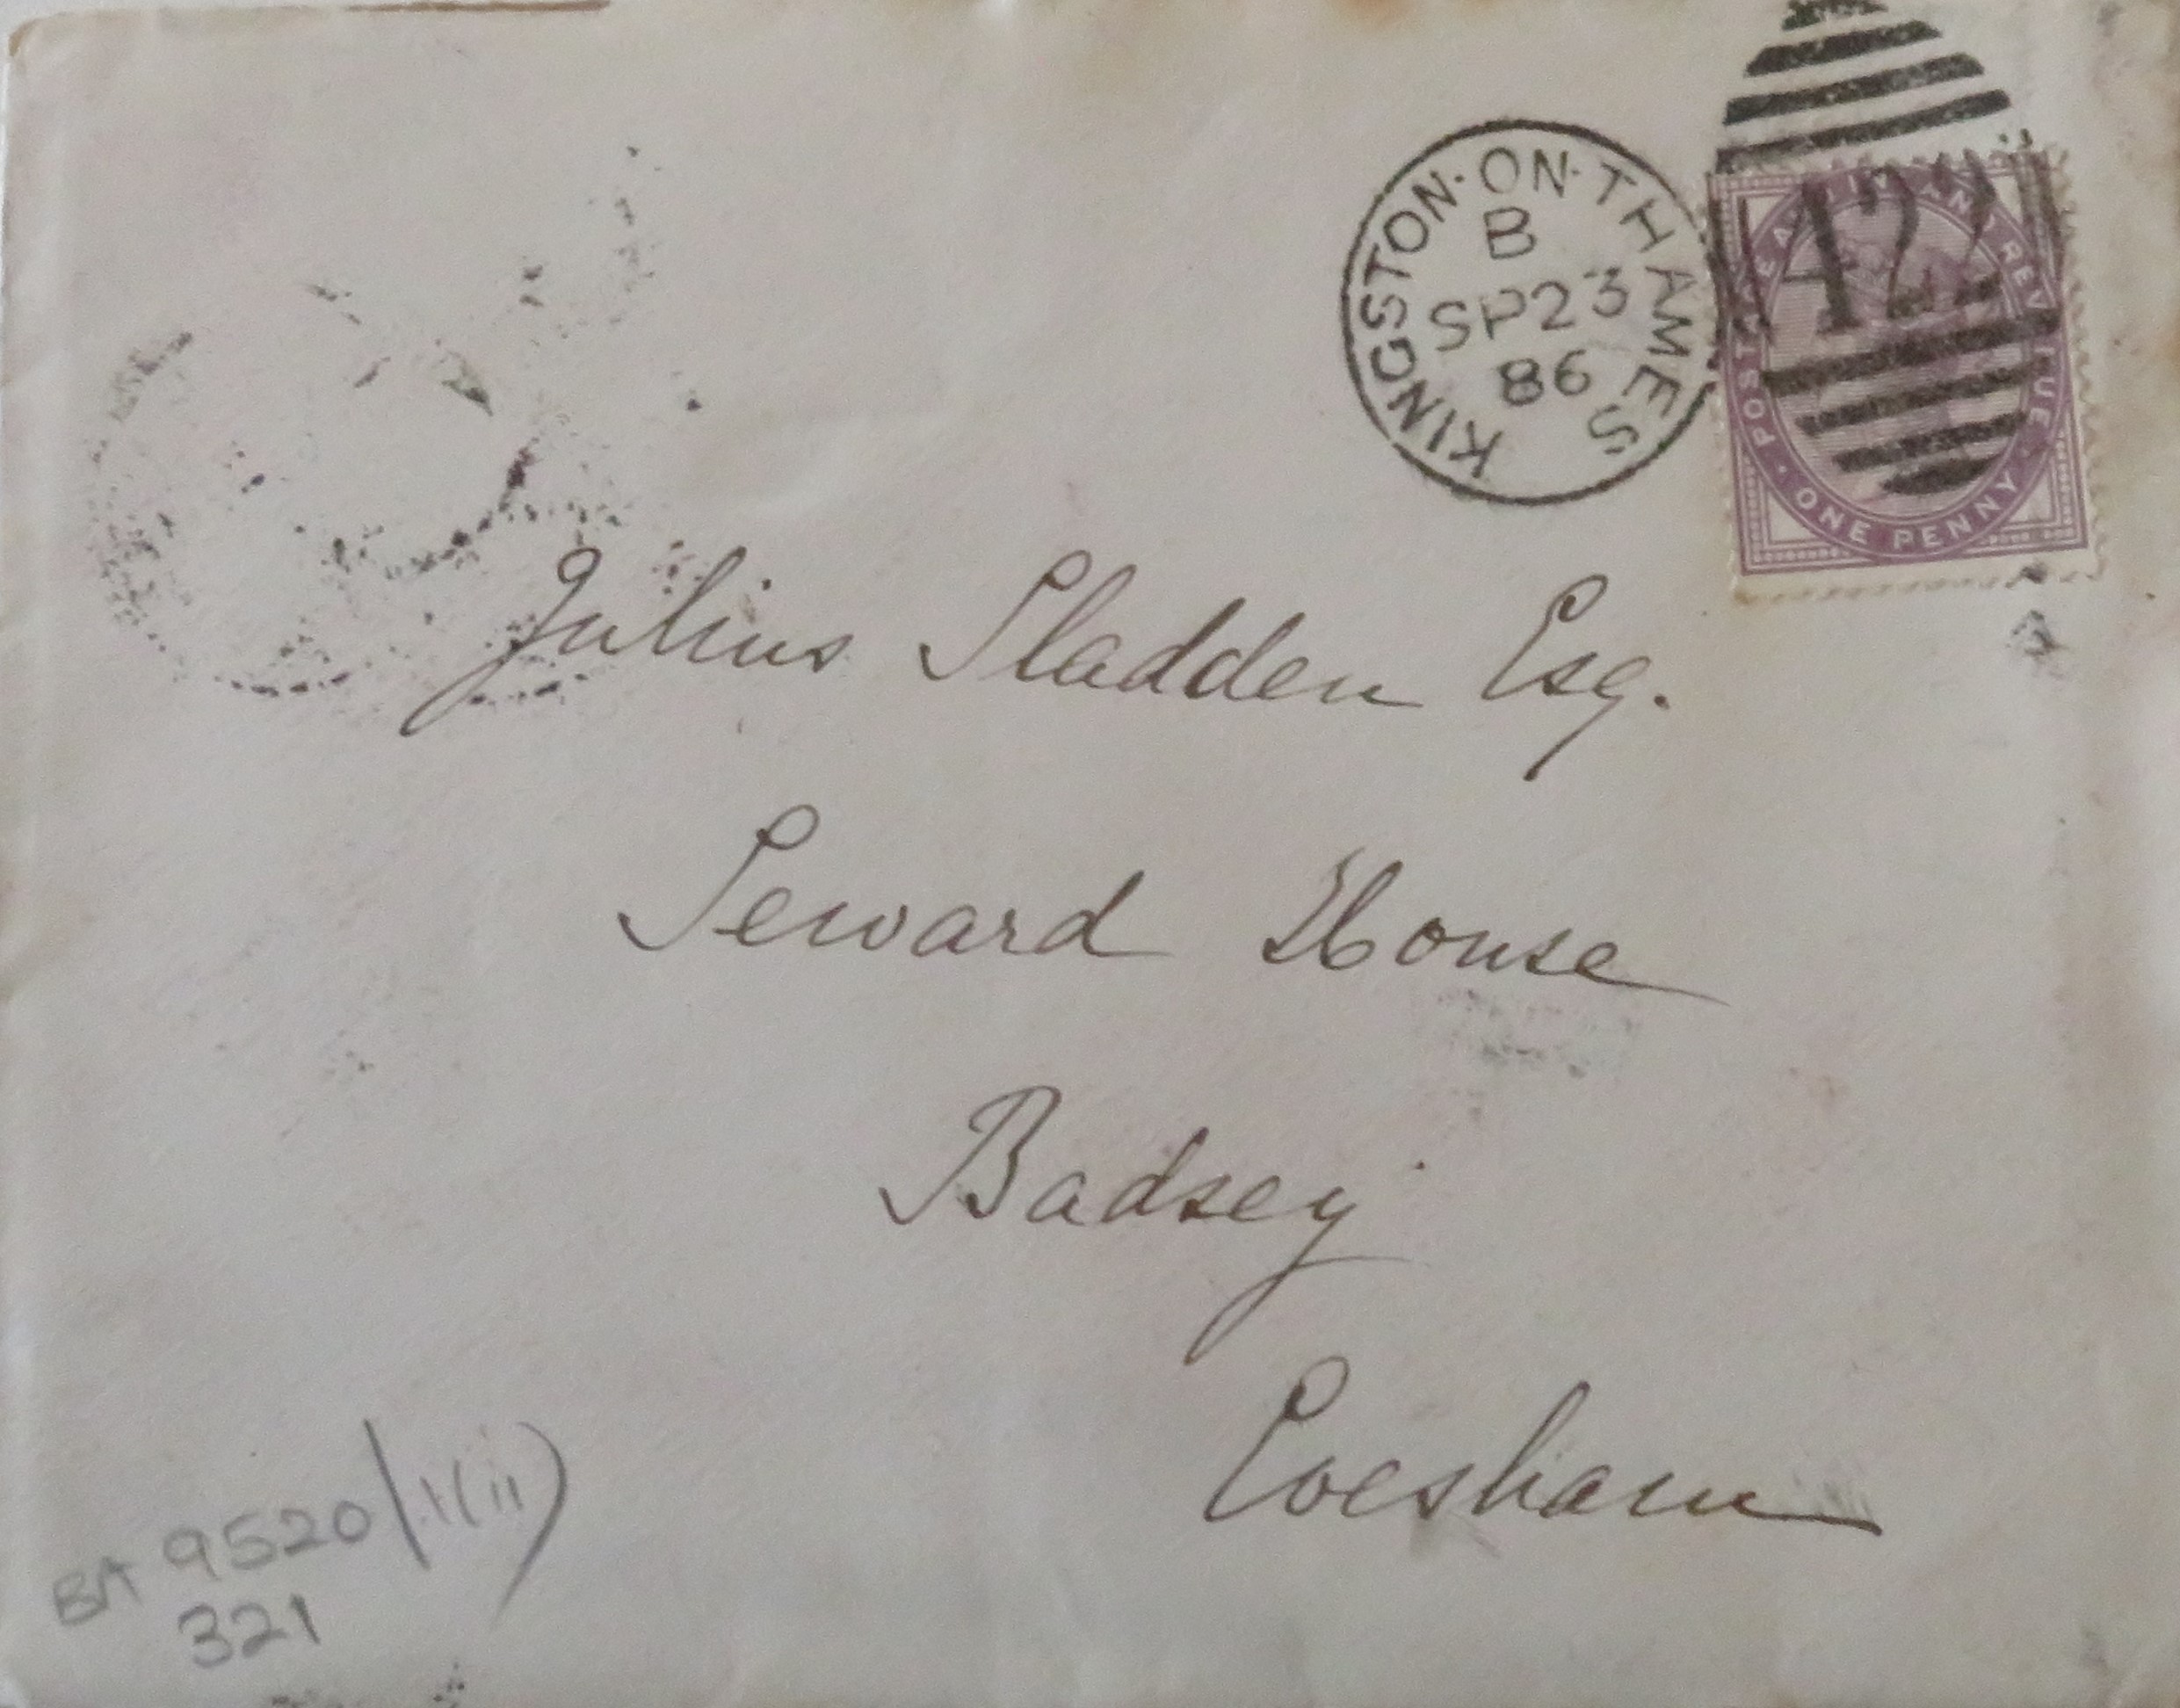 KINGSTON·ON·THAMES
B
SP 23
86
422
POSTAGE AND INLAND REVENUE · ONE PENNY
Julius Sladden Esq.
Seward House
Badsey
Evesham
BA 9520/1(ii)
321